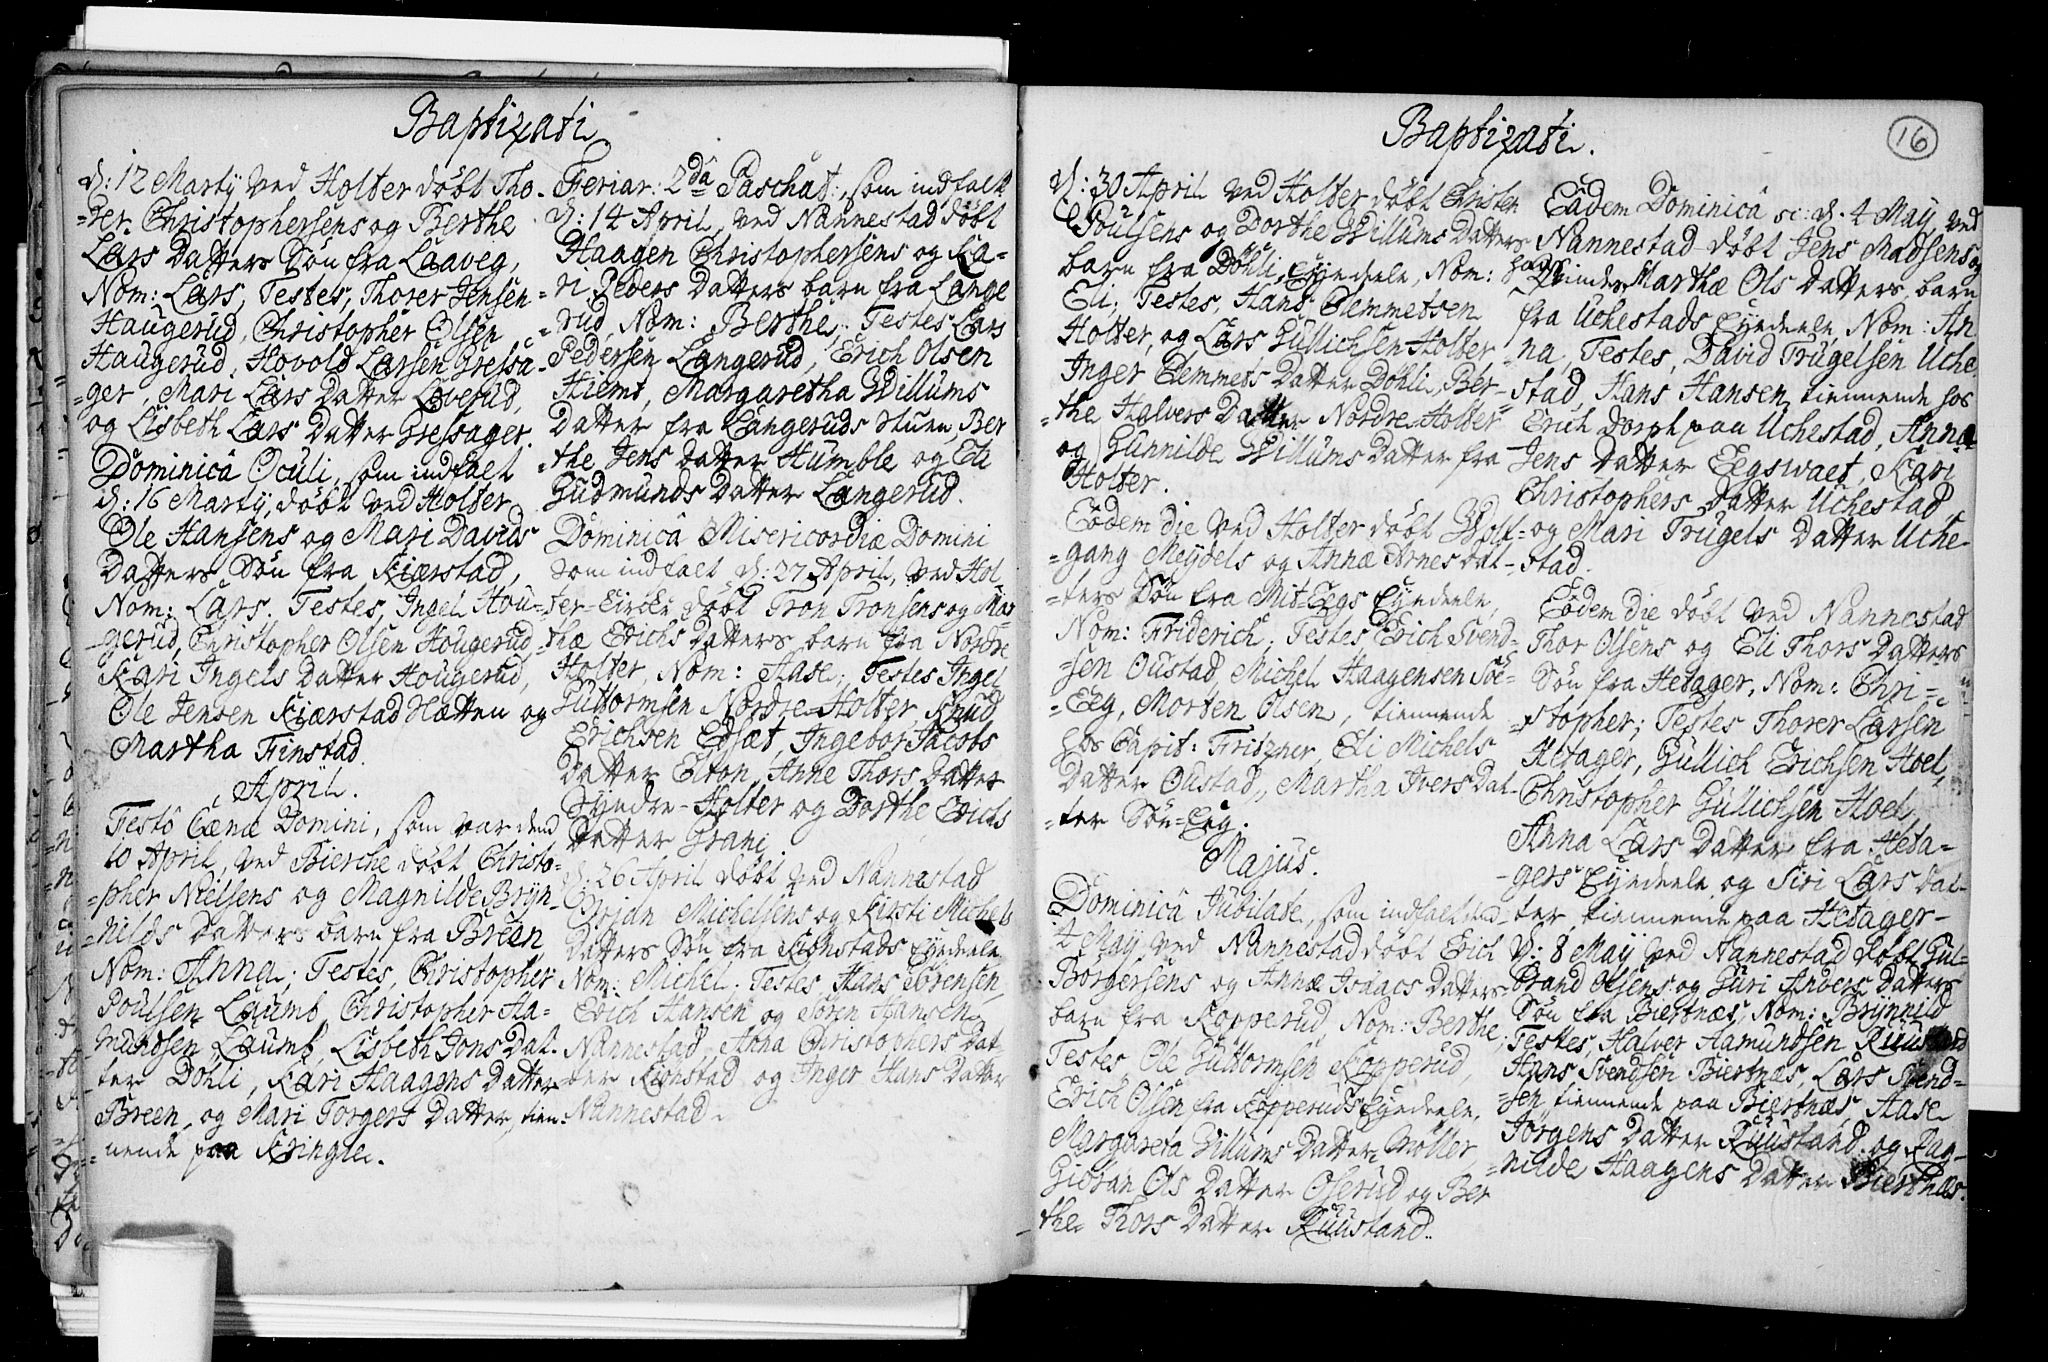 Baptizati
d: 12 Martÿ ved Holter døbt Tho-
=rer Christophersens og Berthe
Lars Datters Søn fra Laaveg,
Nom: Lars, Testes, Thorer Jensen
Haugerud, Christopher Olsen
Haugerud, Hovold Larsen Gressa-
=ger, Mari Lars Datter Løverud,
og Lisbeth Lars Datter Gressager.
Dominicâ Oculi, som indfalt
d: 16 Martÿ, døbt ved Holter
Ole Hansens og Mari Davids
Datters Søn fra Kiærstad,
Nom: Lars. Testes, Ingel Hou-
=gerud, Christopher Olsen Hougerud,
Kari Ingels Datter Hougerud,
Ole Jensen Kiærstad Hætten og
Martha Finstad.
April.
Festô Cœnæ Domini, som var dend
10 April, ved Bierche døbt Christo-
=pher Nielsens og Magnilde Bryn-
=nilds Datters barn fra Breen
Nom: Anna; Testes, Christopher
Poulsen Laumb, Christopher Ha-
mundsen Laumb, Lisbeth Jons Dat-
ter Døhli, Kari Haagens Datter
Breen, og Mari Torgers Datter, tien-
nende paa Kringle.
Feriar: 2dâ Paschat:, som indfalt
d: 14 April, ved Nannestad døbt
Haagen Christophersens og Ka-
=ri Peders Datters barn fra Lange
=rud, Nom: Berthe; Testes Lars
Pedersen Langerud, Erich Olsen
Hiemt, Margaretha Willums
Datter fra Langeruds stuen, Ber
=the Jens Datter Humble og Eli
Gudmunds Datter Langerud.
Dominicâ Misericordiæ Domini
som indfalt d: 27 April, ved Hol-
ter-Kirche døbt Tron Tronsens og Mar
=thæ Erichs Datters barn fra Nordre
Holter, Nom: Aase; Testes Ingel
Guttormsen Nordre-Holter, Knud
Erichsen Edsæt, Ingebor Jacobs
Datter Elton, Anne Thors Datter
Syndre-Holter og Dorthe Erichs
Datter Grani
d: 26 April døbt ved Nannestad
Michelsens og Kirsti Michels
Datters Søn fra Kionstads Eyendeele
Nom: Michel; Testes, Hans Sørensen,
Erich Hansen og Søren Hansen
Nannestad, Anna Christophers Dat-
ter Kionstad, og Inger Hans Datter
Nannestad.
Baptizati.
16
d: 30 April ved Holter døbt Christen
Poulsens og Dorthe Willums Datters
barn fra Døhli Eyendeele, Nom:
Eli; Testes, Hans Clemmetsen
Holter, og Lars Gullichsen Holter
Inger Clemmets Datter Døhli, Ber-
=the Halvers Datter Nordre-Holter
og Gunnilde Willums Datter fra
Holter.
Eôdem die ved Holter døbt Wolf-
=gang Meydels og Annæ Arnes Dat-
=ters Søn fra Mit-Eegs Eyndeele,
Nom: Friderich; Testes Erich Svend-
=sen Oustad, Michel Haagensen Søe-
=Eeg, Morten Olsen, tiennende
hos Capit: Fritzner, Eli Michels
Datter Oustad, Martha Ivers Dat-
=ter Søn-Eeg.
Majus.
Dominicâ Jubilate, som indfalt dend
4 Maÿ ved Nannestad døbt Erich
Borgersens og Annæ Isaacs Datters
barn fra Kopperud, Nom: Berthe;
Testes, Ole Guttormsen Kopperud,
Erich Olsen fra Kopperuds Eyendeele,
Margareta Willums Datter Møller
Giøran Ols Datter Oserud og Ber
the Thors Datter Ruustand.
Eâdem Dominicâ sc: d. 4 May, ved
Nannestad døbt Jens Madsens og
hans Qvindes Marthæ Ols Datters, barn
fra Uchestads Eyndeele, Nom: An
=na, Testes, David Trugelsen Uche
stad, Hans Hansen, tiennende hos
Erich Dorph paa Uchestad, Anna
Jens Datter Eegswaet, Kari
Christophers Datter Uchestad,
og Mari Trugels Datter Uche-
stad.
Eôdem die døbt ved Nannestad
Thor Olsens og Eli Thors Datters
Søn fra Hetager, Nom: Chri-
=stopher; Testes Thorer Larsen
Hetager, Gullich Erichsen Hoel,
Christopher Gullichsen Hoel,
Anna Lars Datter fra Heta-
-gers Eyndeele og Siri Lars Dat-
ter, tiennende paa Hetager-
d: 8 Maÿ ved Nannestad døbt Gul-
brand Olsens og Guri Anvers Datters
Søn fra Biertnæs, Nom: Brynnild
Testes, Halver Hamundsen Ruustand
Hans Svendsen Biertnæs, Lars Svend-
sen, tiennende paa Biertnæs, Aase
Jørgens Datter Ruustand og Rag-
=nilde Haagens Datter Biertnæs.